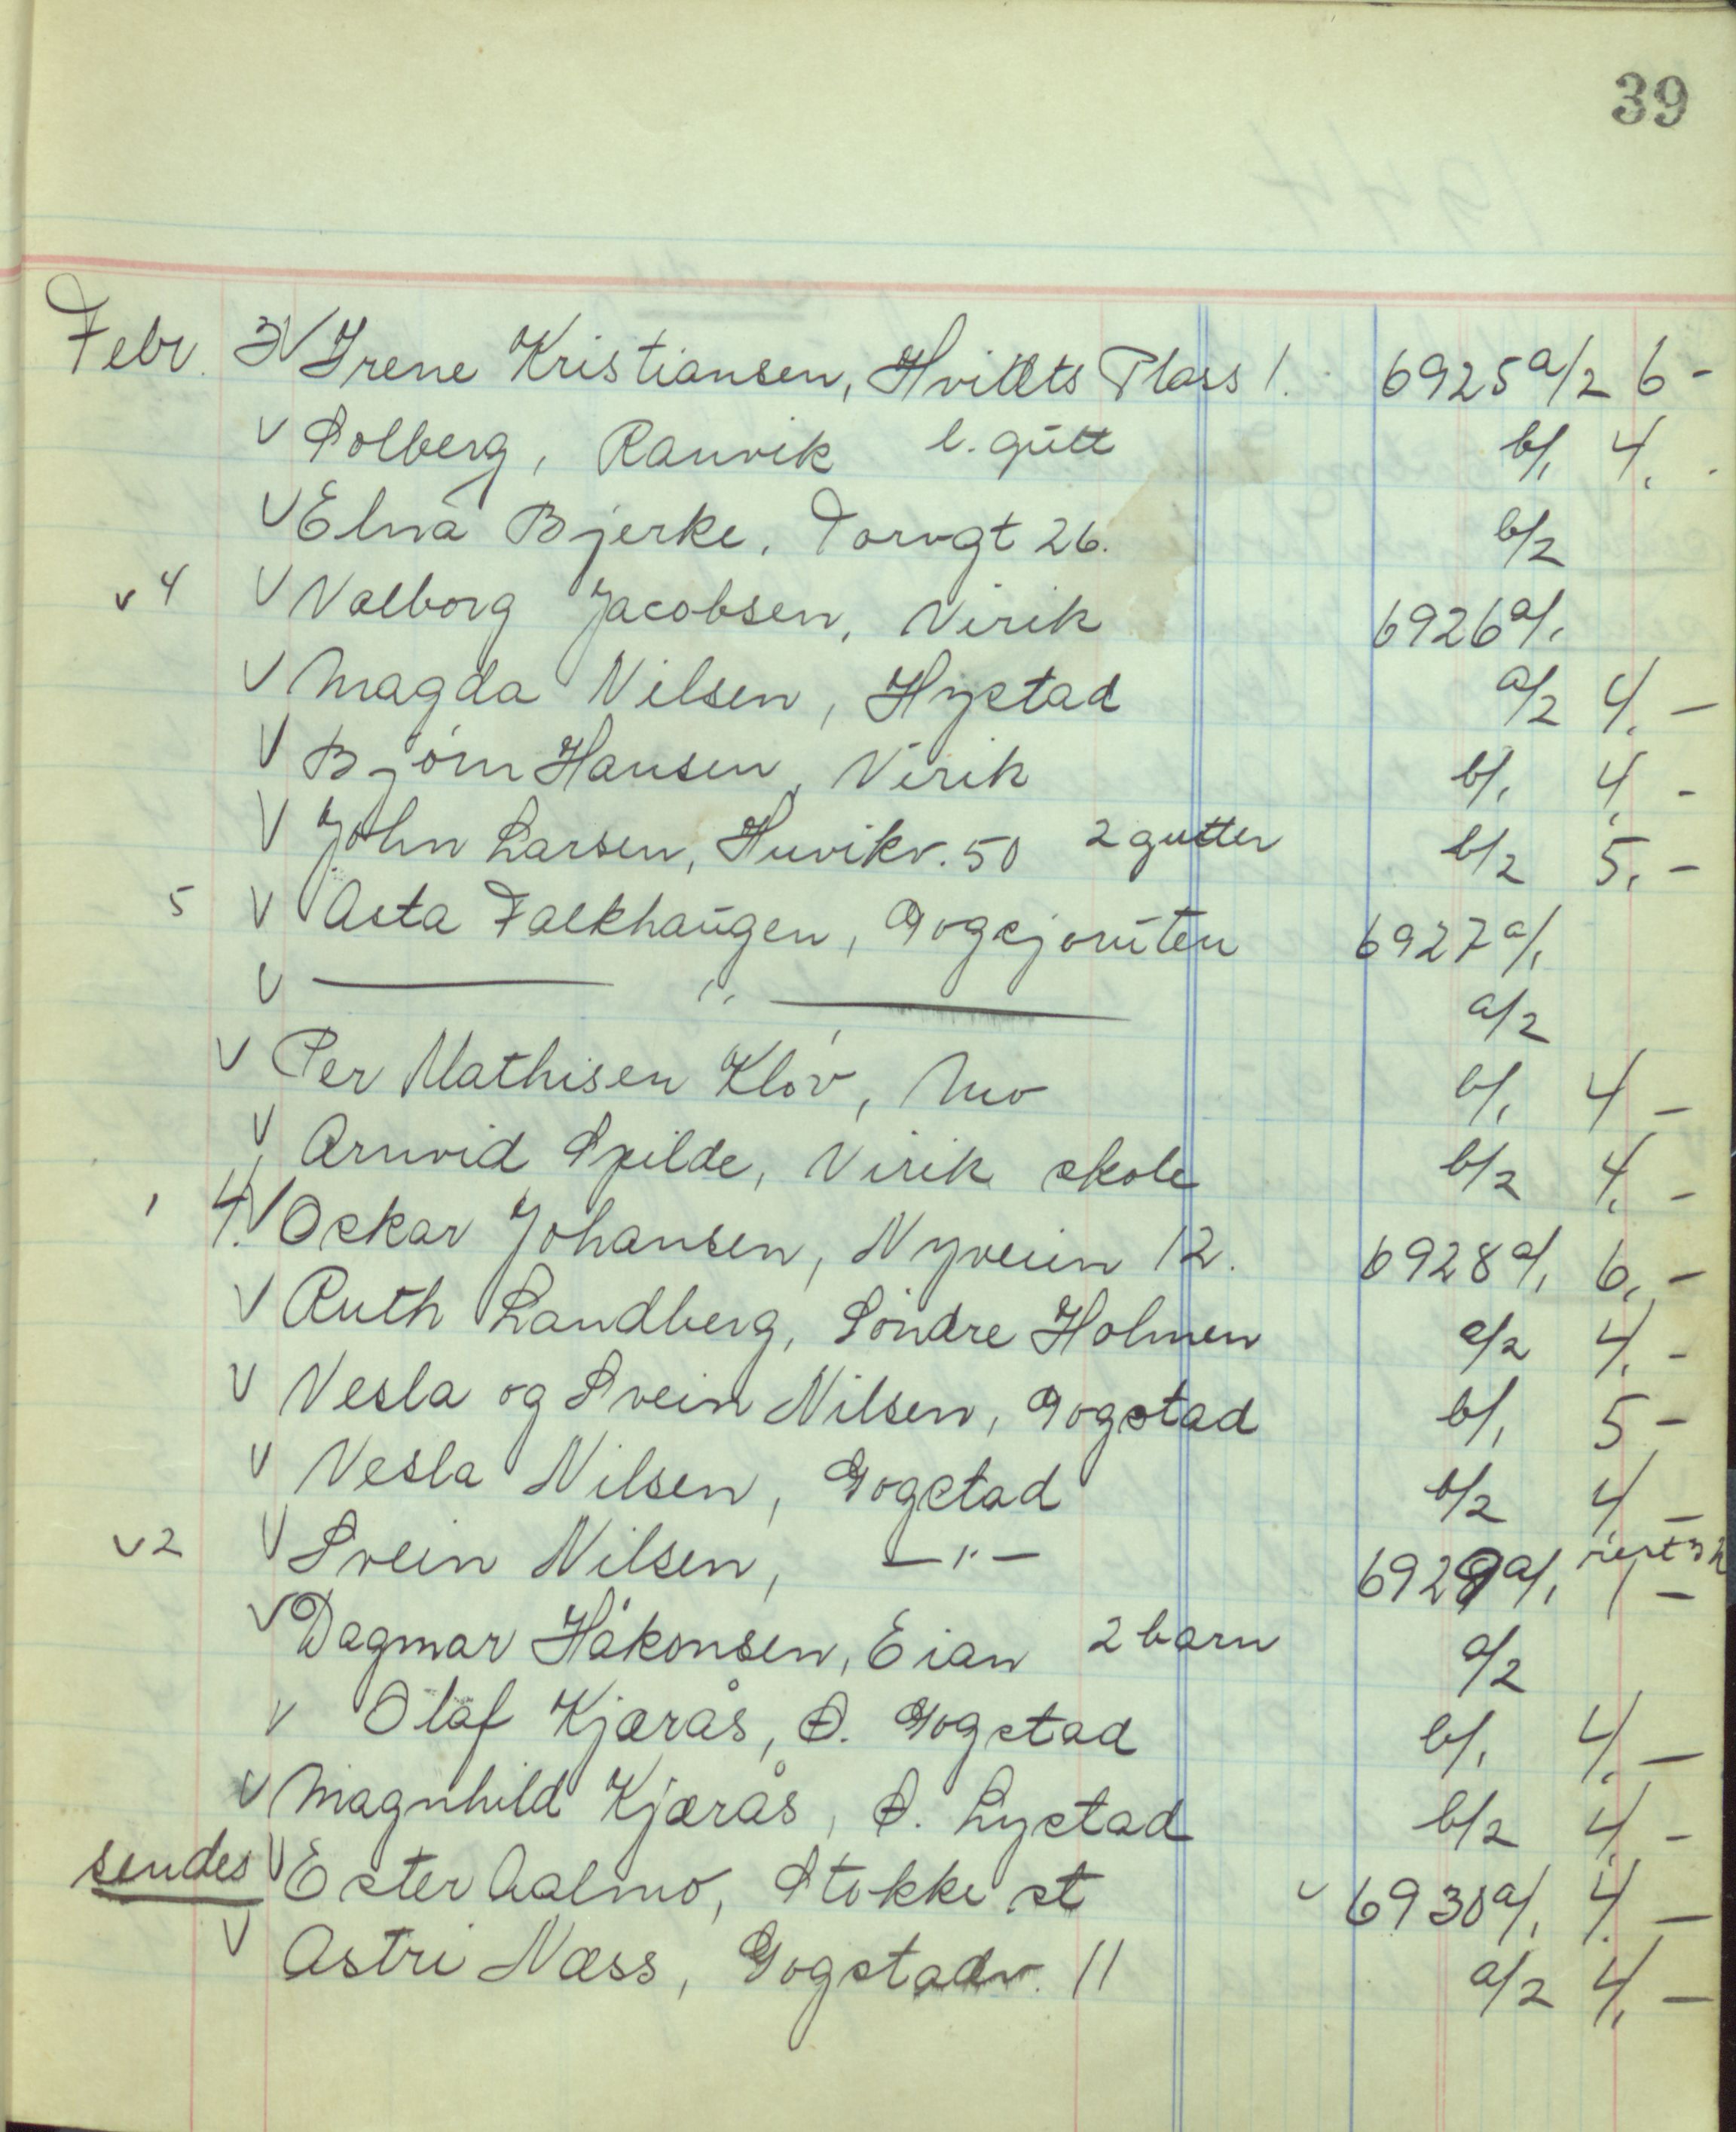 39
Febr. 3 V Irene Kristiansen, Hvidts Plass 1. 6925 a/2 6 -
V Solberg, Ranvik l. gutt b/1 4.
V Elna Bjerke, Torvgt 26. b/2
v 4 V Valborg Jacobsen, Virik 6926 a/1
V Magda Nilsen, Hystad a/2 4. -
V Bjørn Hansen, Virik b/1 4, -
V John Larsen, Huvikv. 50 2 gutter b/2 5. -
5 V Asta Falkhaugen, Gogsjøruten 6927 a/1
V — " — a/2
V Per Mathisen Kløv, Mo b/1 4 -
V Arnvid Spilde, Virik skole b/2 4, -
1 4. V Oskar Johansen, Nyveien 12. 6928 a/1 6, -
V Ruth Landberg, Söndre Holmen a/2 4. -
V Vesla og Svein Nilsen, Gogstad b/1 5 -
V Vesla Nilsen, Gogstad b/2 4, -
v 2 V Svein Nilsen, — " — 6929 a/1 rest 3 1 -
V Dagmar Håkonsen, Eian 2 barn a/2
V Olaf Kjærås, Ø. Gogstad b/1 4. -
V Magnhild Kjærås, Ø. Lystad b/2 4, -
sendes V Ester Aalmo, Stokke st v 6930 a/1 4. -
V Astri Næss, Gogstadv. 11 a/2 4, -